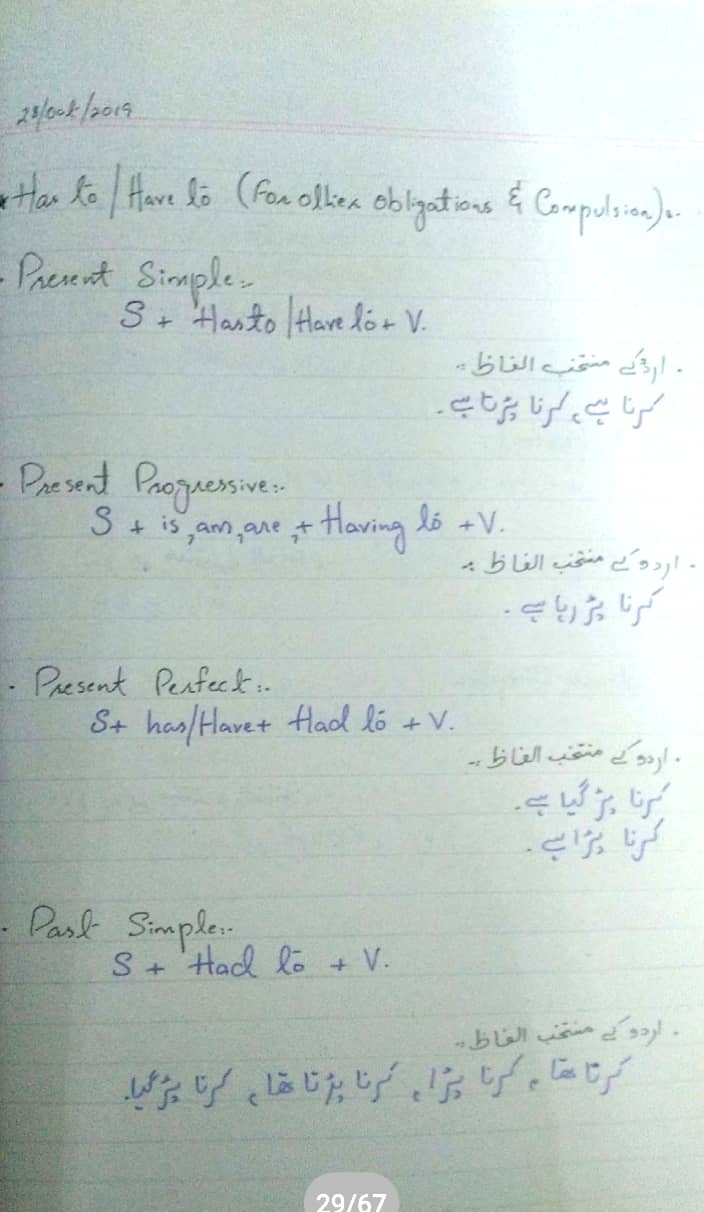 28/Oct/2019
* Has to / Have to (For other obligations & Compulsion):-
· Present Simple:-
S + Has to / Have to + V.
۔ اردو کے منتخب الفاظ :-
کرنا ہے، کرنا پڑتا ہے۔
· Present Progressive:-
S + is, am, are, + Having to + V.
۔ اردو کے منتخب الفاظ :-
کرنا پڑ رہا ہے۔
· Present Perfect:-
S + has/Have + Had to + V.
۔ اردو کے منتخب الفاظ :-
کرنا پڑ گیا ہے۔
کرنا پڑا ہے۔
· Past Simple:-
S + Had to + V.
۔ اردو کے منتخب الفاظ :-
کرنا تھا، کرنا پڑا، کرنا پڑتا تھا، کرنا پڑ گیا۔
29/67